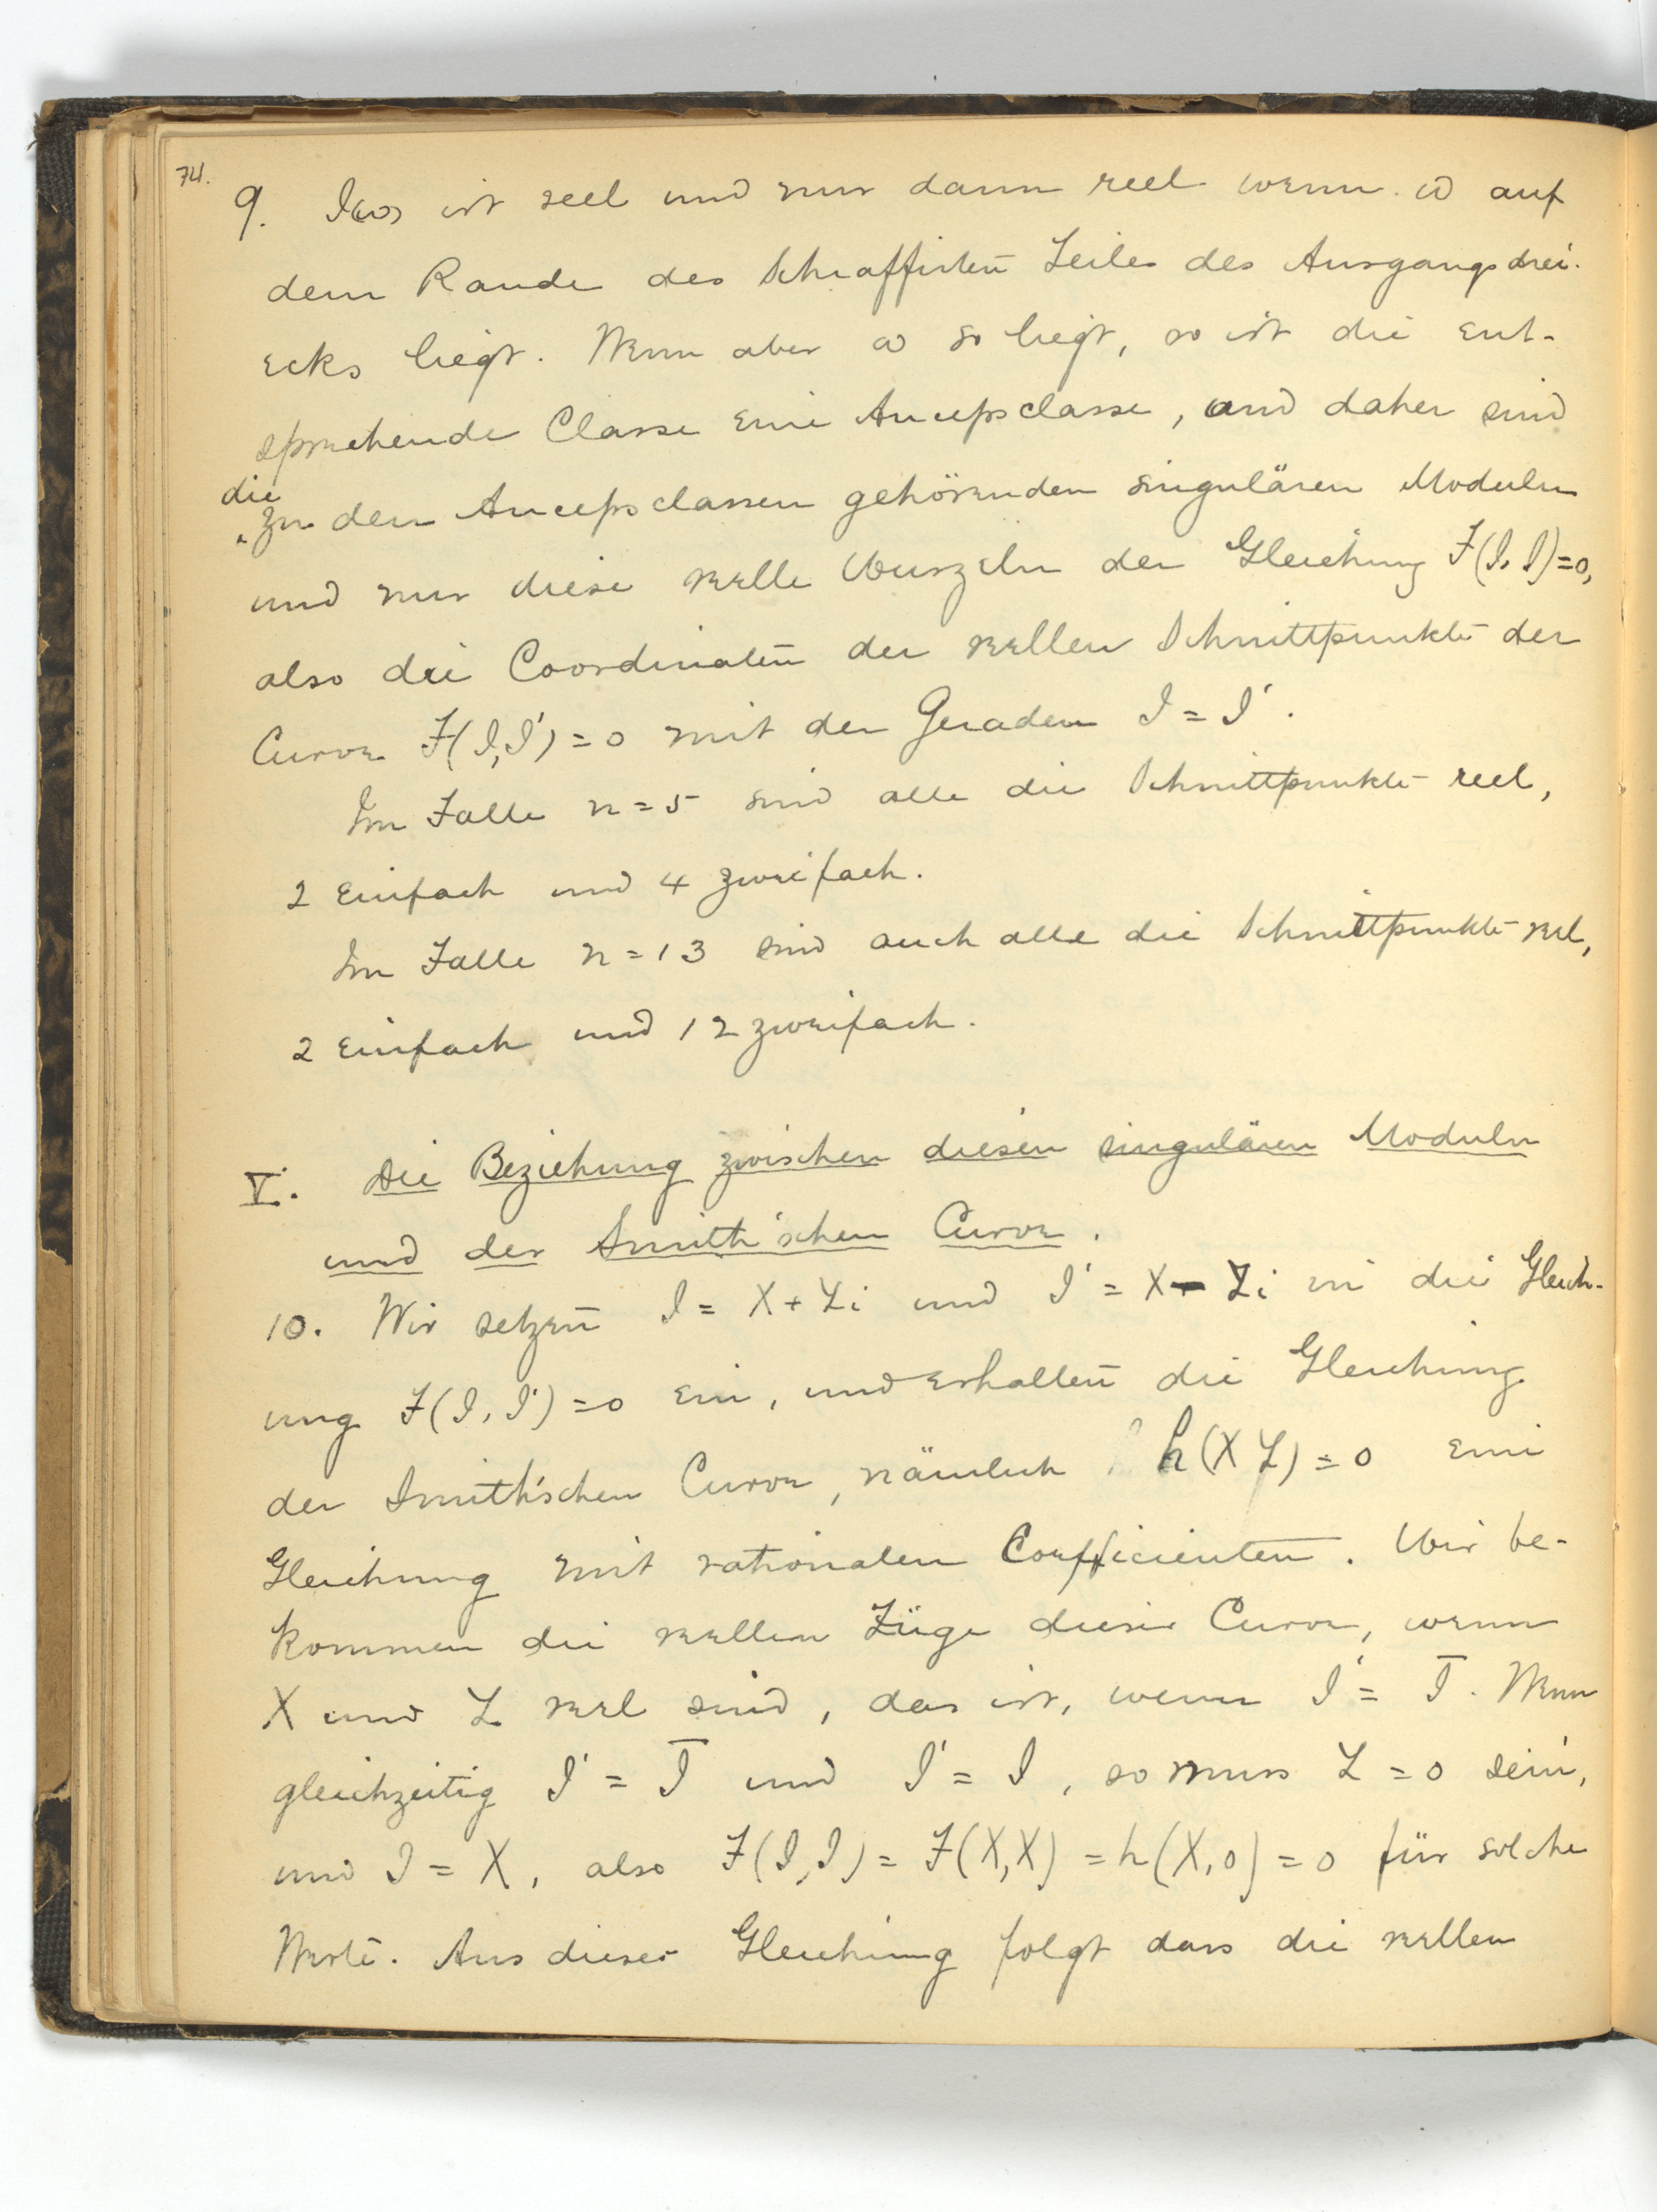 74.
9. J(ω) ist reel und nur dann reel wenn ω auf
dem Rande des Schraffirten Teiles des Ausgangsdrei-
ecks liegt. Wenn aber ω so liegt, so ist die ent-
sprechende Classe eine Ancepsclasse, und daher sind
die
zu den Ancepsclassen gehörenden singulären Moduln
und nur diese reelle Wurzeln der Gleichung F(J, J)=0,
also die Coordinaten der reellen Schnittpunkte der
Curve F(J, J') = 0 mit der Geraden J = J'.
Im Falle n = 5 sind alle die Schnittpunkte reel,
2 Einfach und 4 zweifach.
Im Falle n = 13 sind auch alle die Schnittpunkte reel,
2 Einfach und 12 zweifach.
V. Die Beziehung zwischen diesen singulären Moduln
und der Smith'schen Curve.
10. Wir setzen J = X + Yi und J' = X - Yi in die Gleich-
ung F(J, J') = 0 ein, und erhalten die Gleichung
der Smith'schen Curve, nämlich h(X Y) = 0 eine
Gleichung mit rationalen Coefficienten. Wir be-
kommen die reellen Züge dieser Curve, wenn
X und Y reel sind, das ist, wenn J' = J̅. Wenn
gleichzeitig J' = J̅ und J' = J, so muss Y = 0 sein,
und J = X, also F(J, J) = F(X, X) = h(X, 0) = 0 für solche
Werte. Aus dieser Gleichung folgt dass die reellen